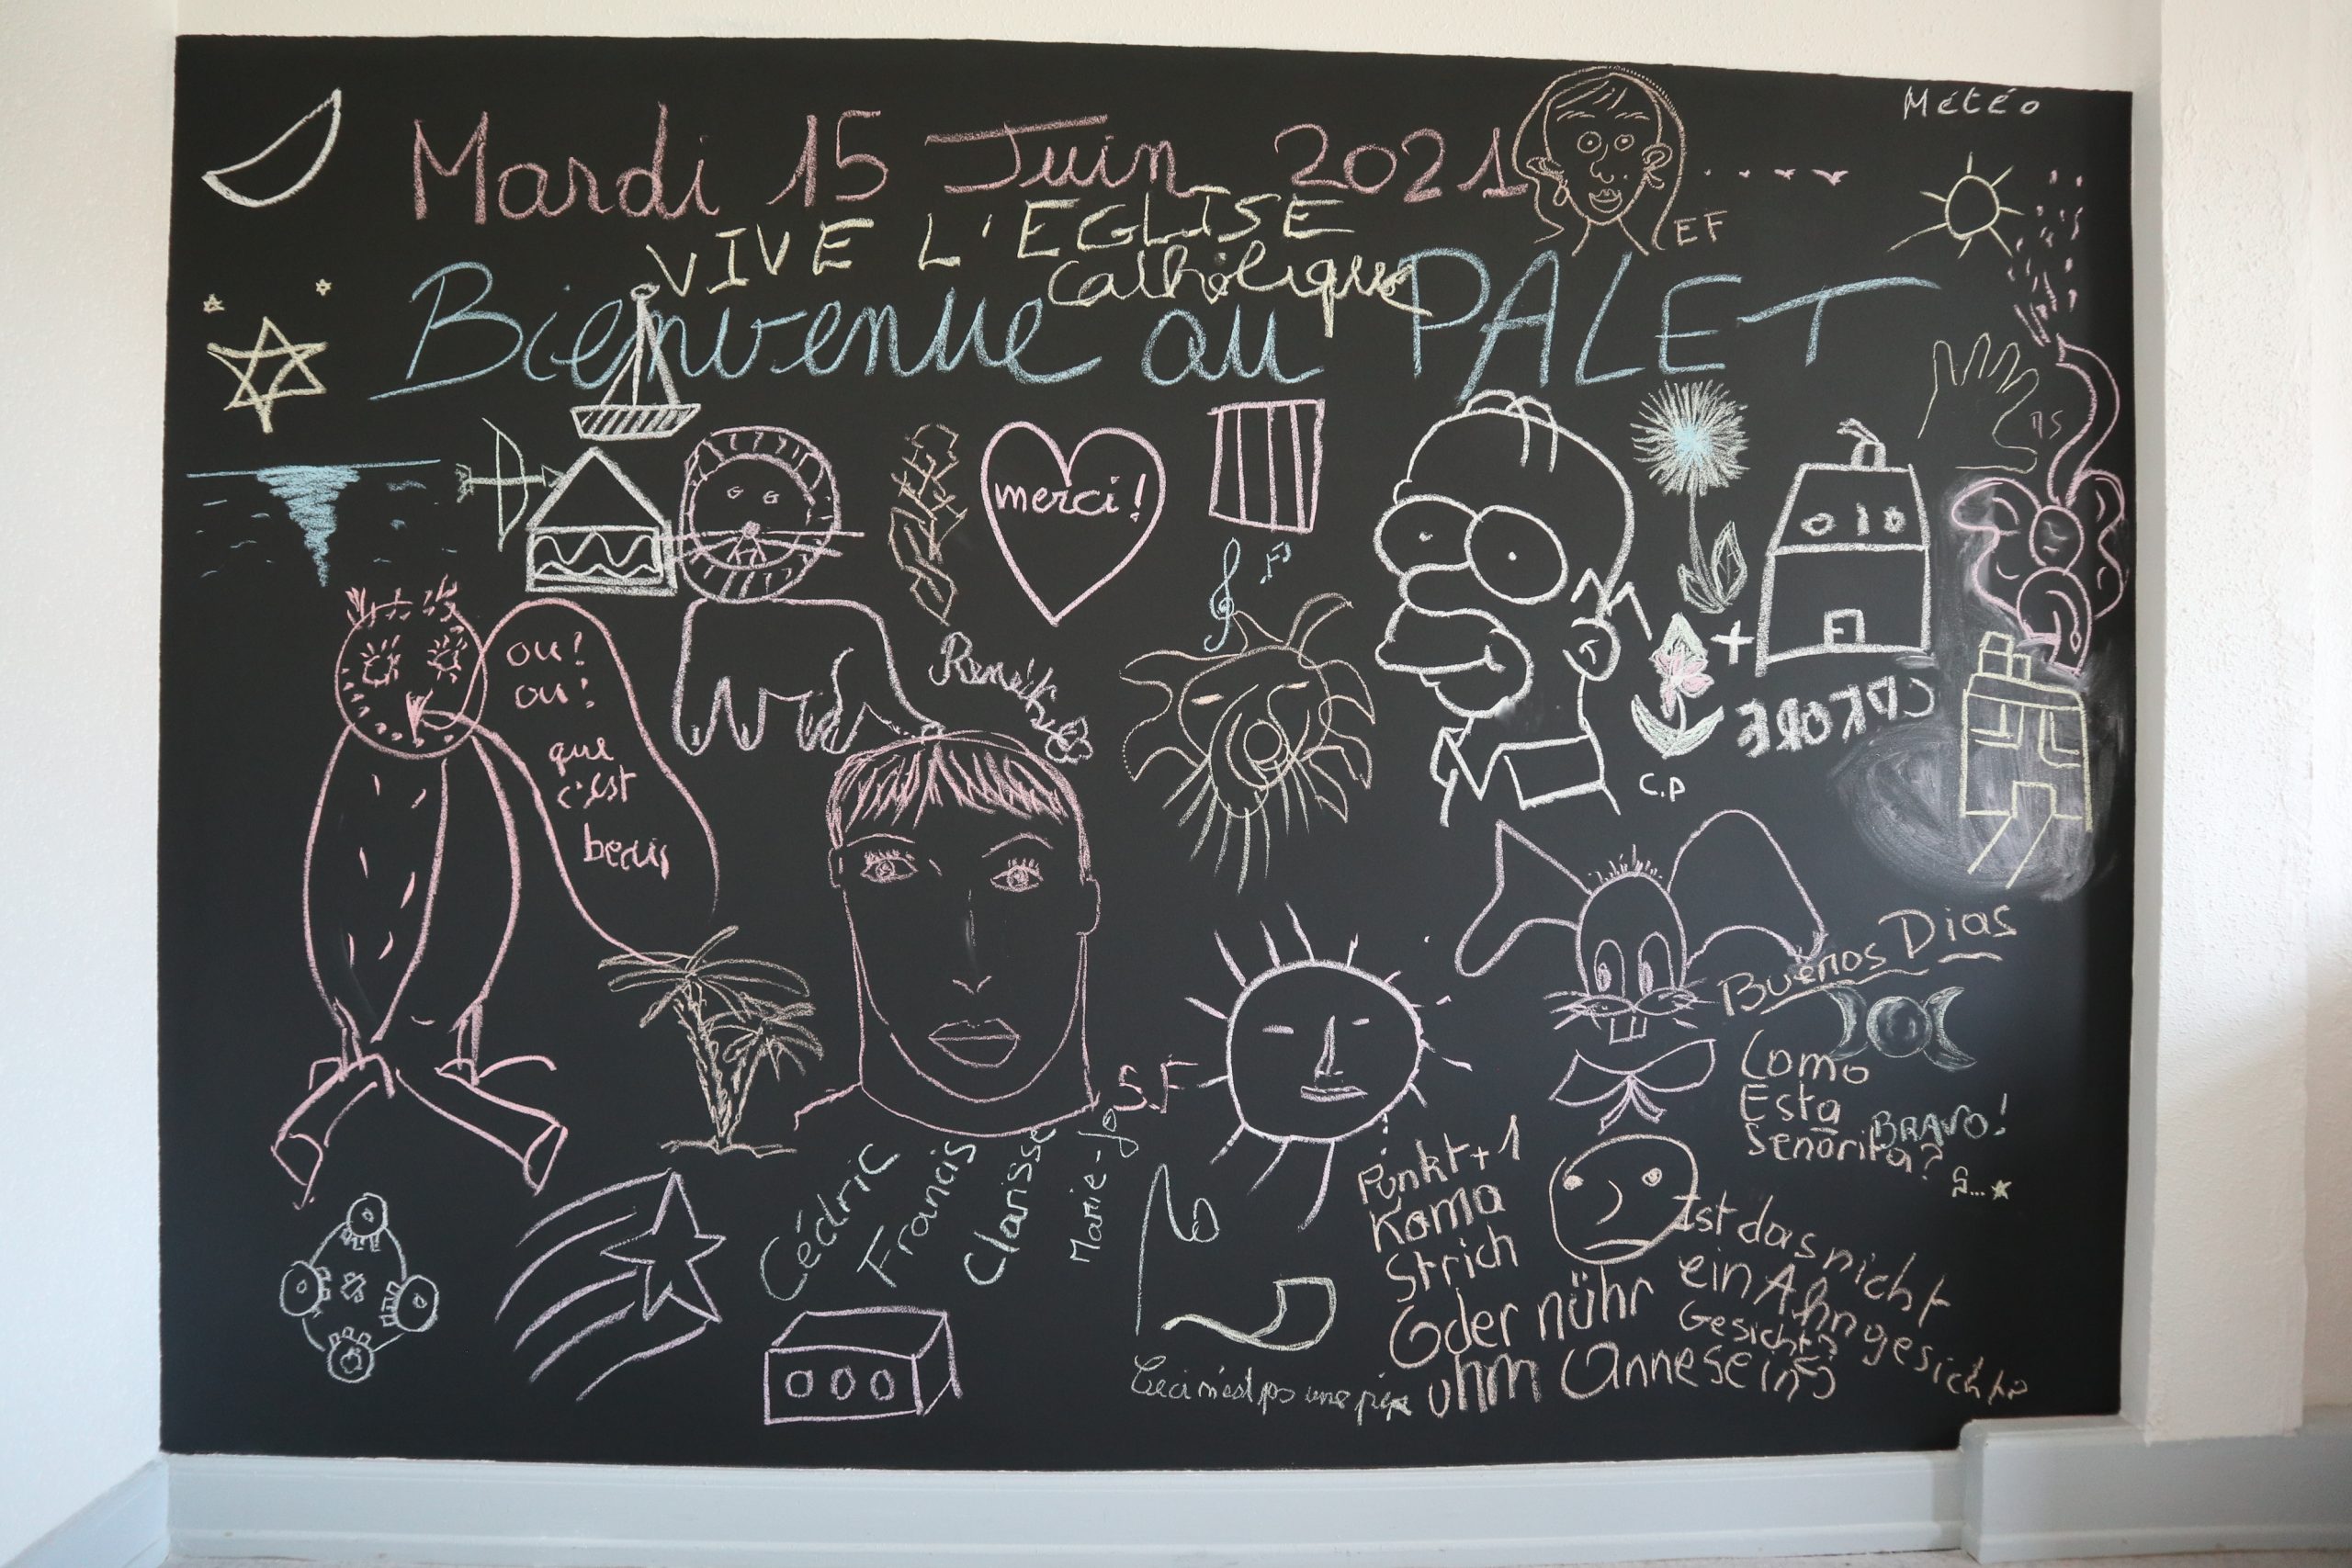 Météo
Mardi 15 Juin 2021
EF
VIVE L'EGLISE
Catholique
Bienvenue au PALET
merci!
ou!
ou!
que
c'est
beau
C.P
Buenos Dias
Como
Esta
Señorita?
BRAVO!
S...
S.F
Cédric
Francis
Clarisse
Marie-Jo
Punkt+1
Koma
Strich
Oder nühr
uhm Annesein?
Ist das nicht
ein Ahngesicht?
Gesicht?
Ceci n'est pas une pipe